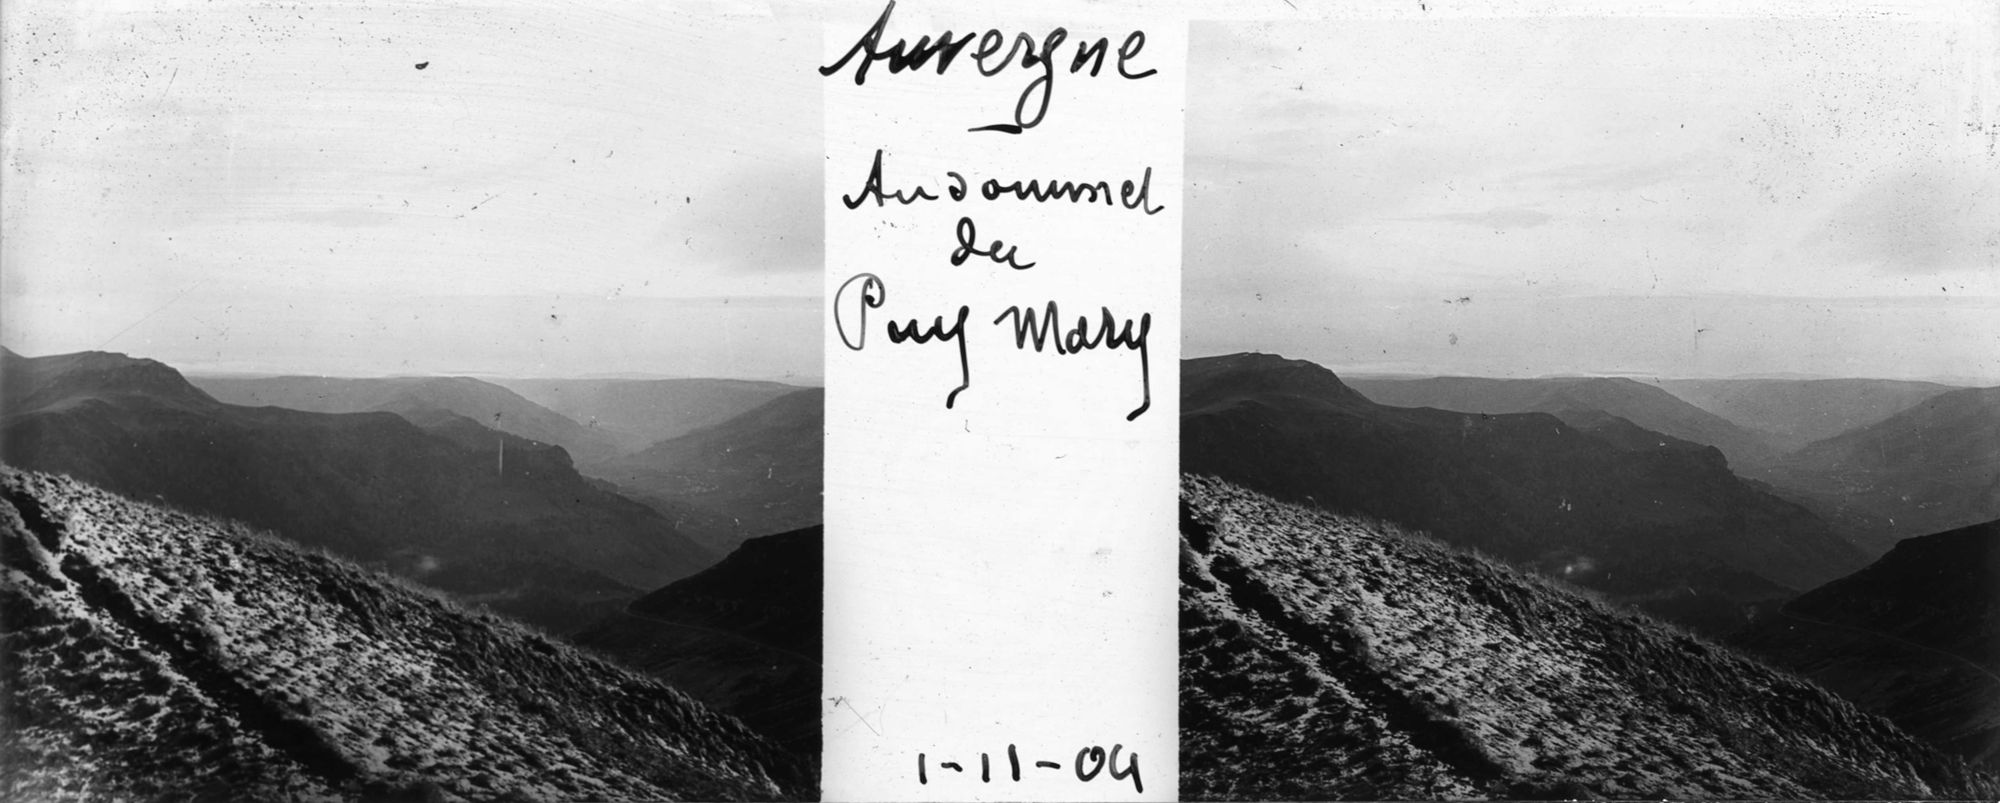 Auvergne
Au sommet
du
Puy Mary
1-11-04